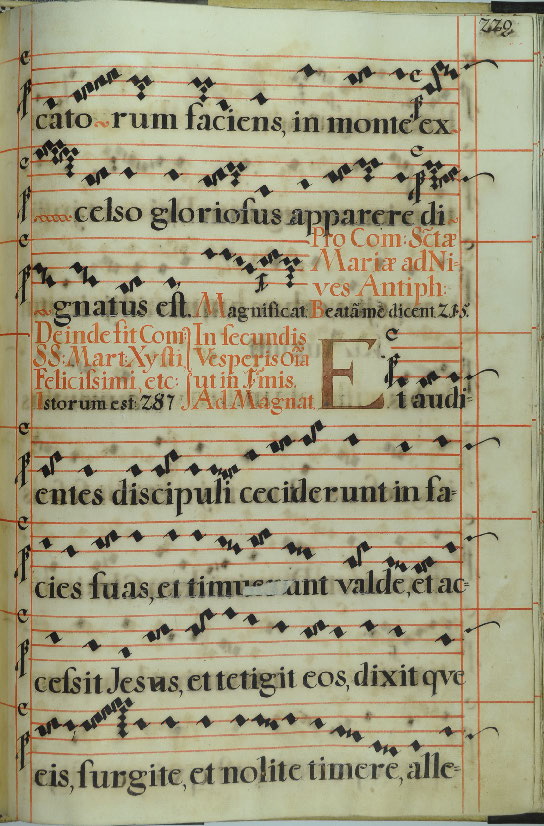 229
cato rum faciens, in monte ex
celso gloriosus apparere di
Pro Com: Sctæ
Mariæ ad Ni-
ves Antiph:
gnatus est. Magnificat Beatã me dicent 215.
Deinde fit Com
SS: Mart: Xysti
Felicissimi, etc:
Istorum est 287
In secundis
Vesperis oĩa
ut in Imis,
Ad Magnat
Et audi-
entes discipuli ceciderunt in fa-
cies suas, et timuerant valde, et ac-
cessit Jesus, et tetigit eos, dixit qve
eis, surgite, et nolite timere, alle-